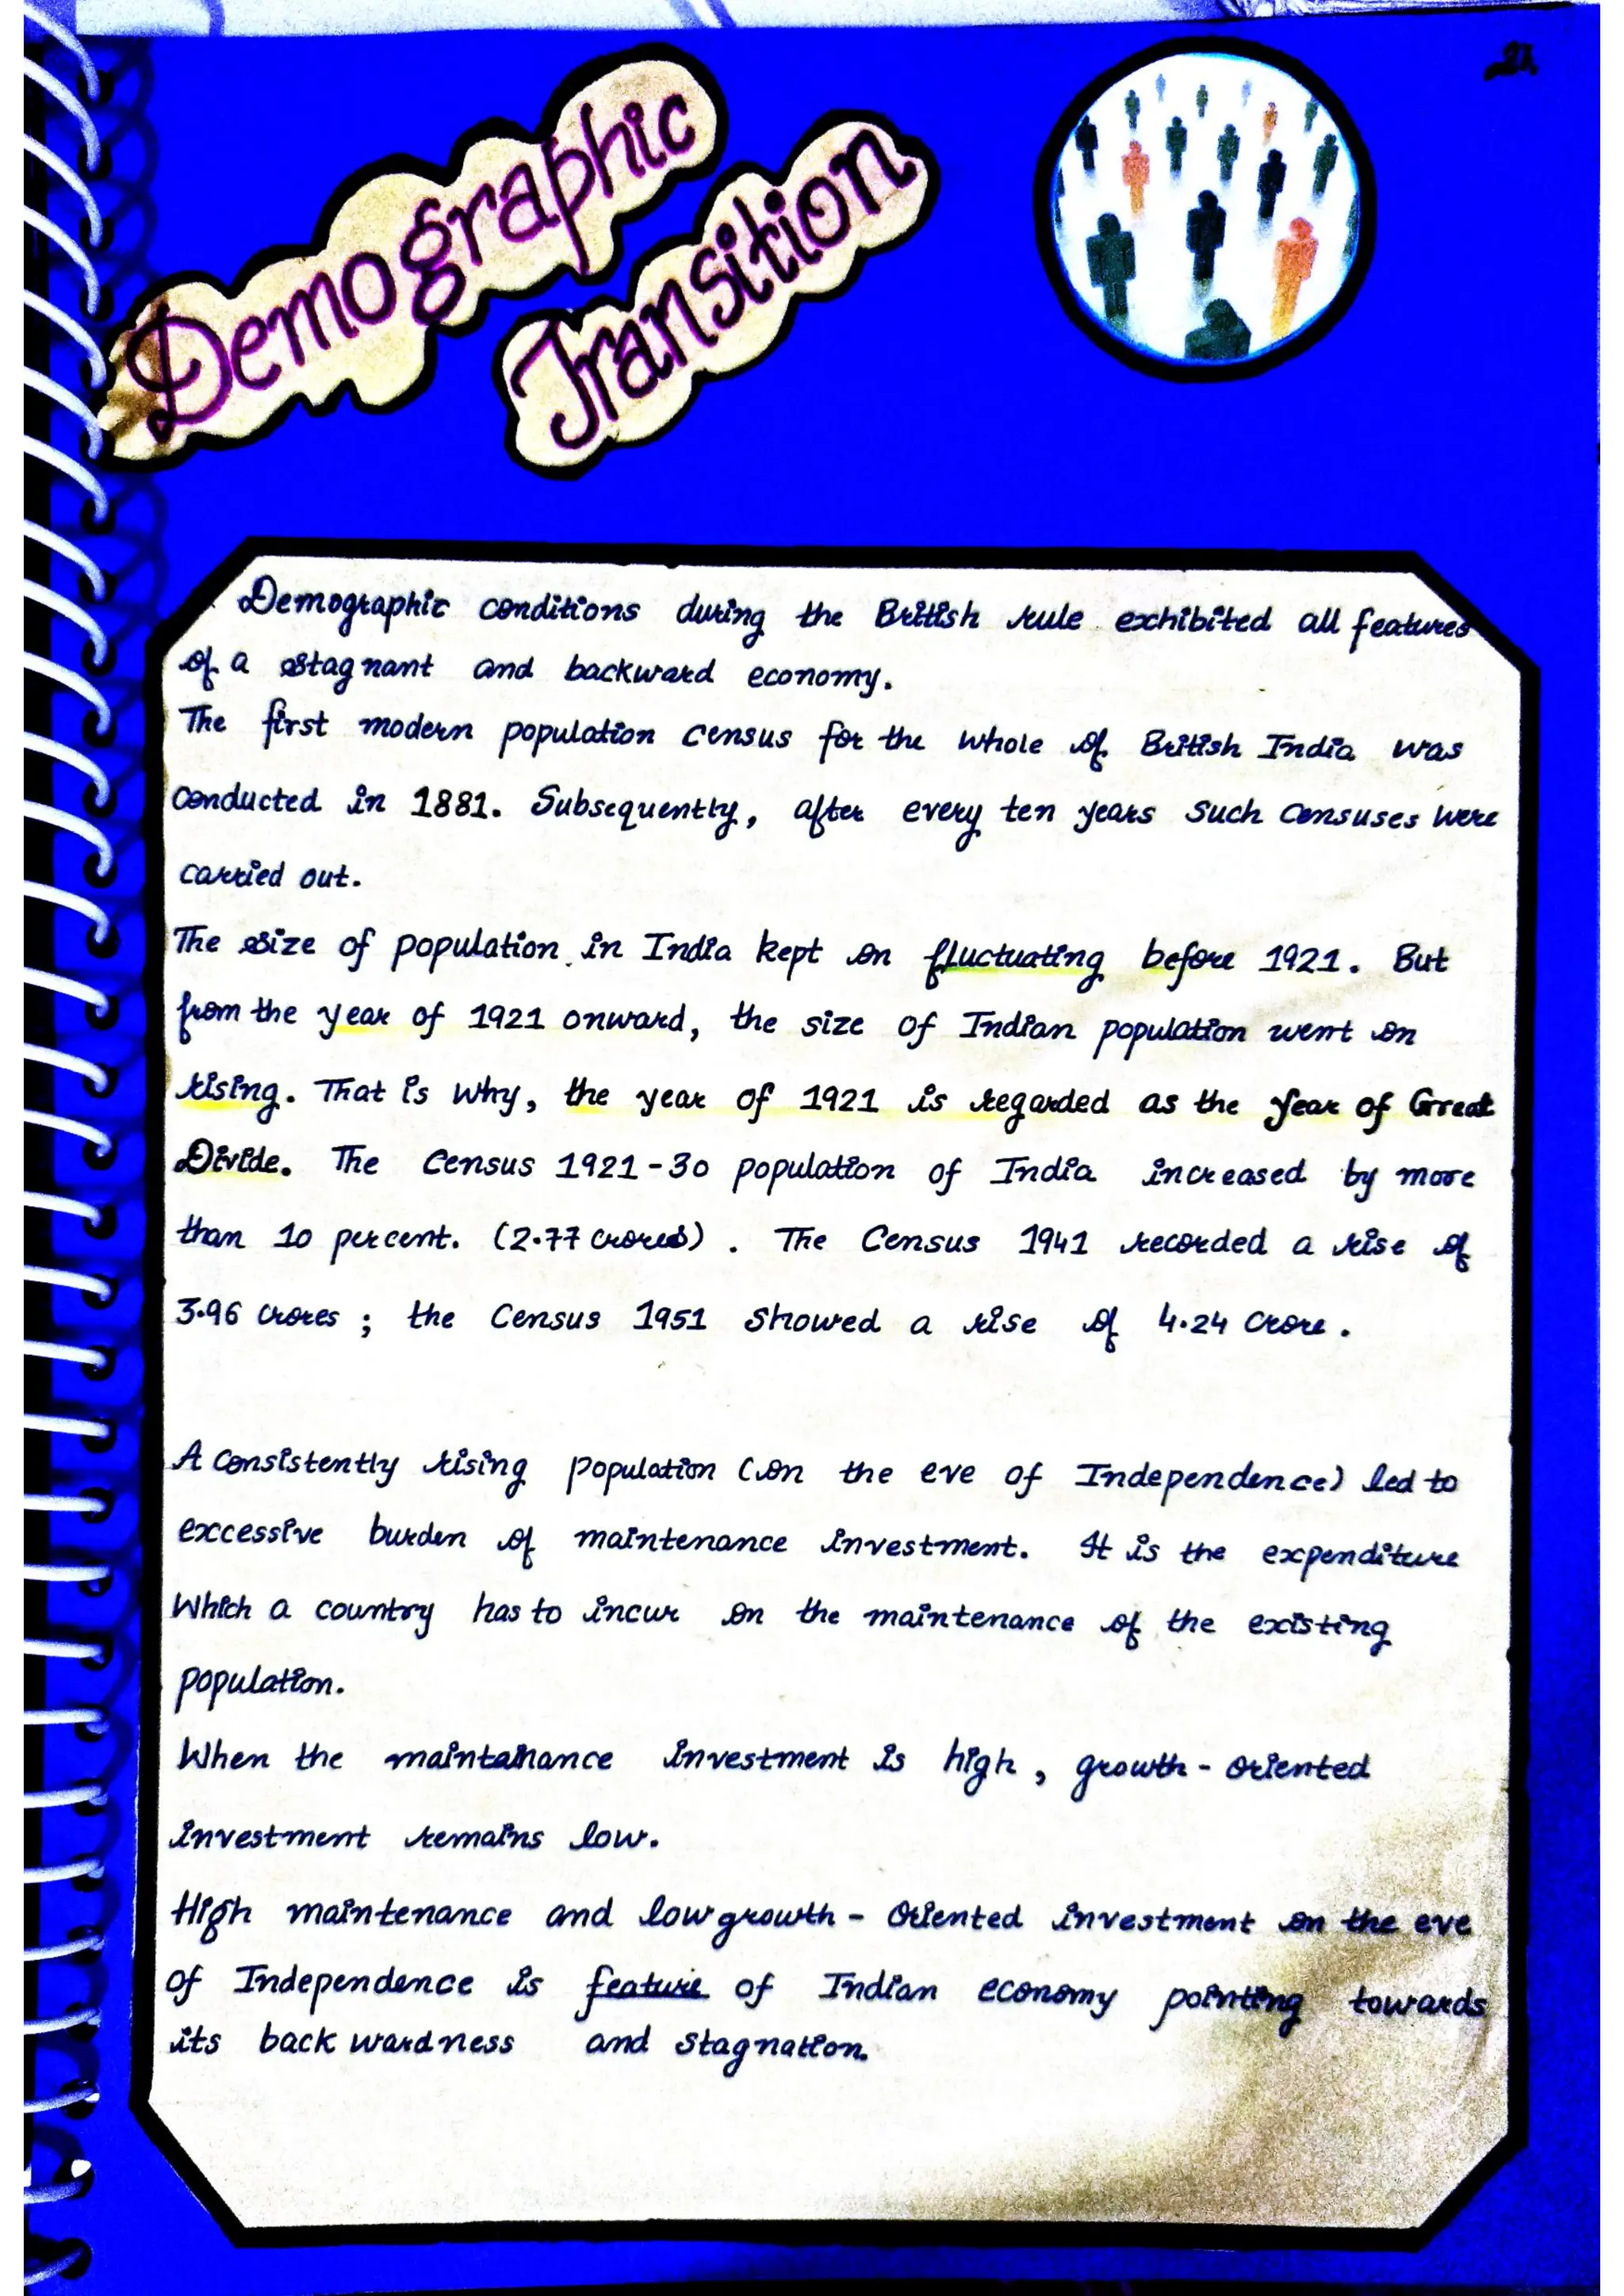 Demographic
Transition
Demographic conditions during the British rule exhibited all features
of a stagnant and backward economy.
The first modern population census for the whole of British India was
conducted in 1881. Subsequently, after every ten years such censuses were
carried out.
The size of population in India kept on fluctuating before 1921. But
from the year of 1921 onward, the size of Indian population went on
rising. That is why, the year of 1921 is regarded as the year of Great
Divide. The Census 1921-30 population of India increased by more
than 10 percent. (2.77 crores). The Census 1941 recorded a rise of
3.96 crores ; the Census 1951 showed a rise of 4.24 crore.
A consistently rising population (on the eve of Independence) led to
excessive burden of maintenance investment. It is the expenditure
which a country has to incur on the maintenance of the existing
population.
When the maintainance investment is high, growth-oriented
investment remains low.
High maintenance and low growth-oriented investment on the eve
of Independence is feature of Indian economy pointing towards
its backwardness and stagnation.